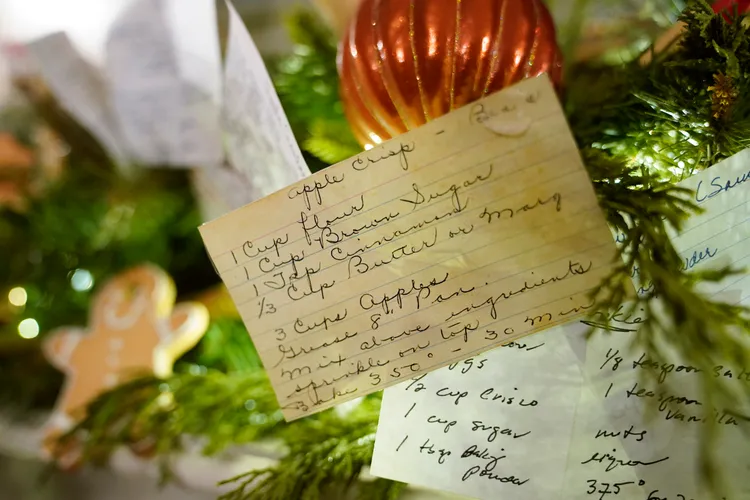 apple Crisp -
1 Cup flour
1 Cup Brown Sugar
1 Tsp Cinnamon
1/3 Cup Butter or Marg
3 Cups Apples
Grease 8" Pan.
Mix above ingredients
sprinkle on top
Bake 350° - 30 min
1/2 cup Crisco
1 cup sugar
1 tsp Baking
Powder
1/8 teaspoon salt
1 teaspoon
Vanilla
nuts
375°